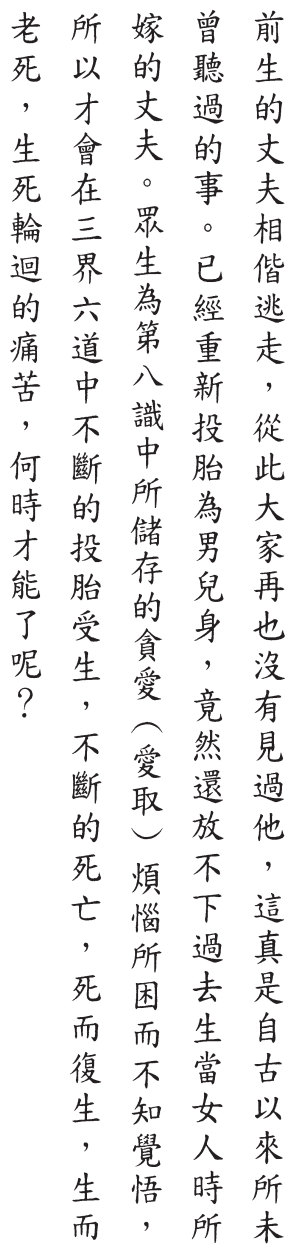 前生的丈夫相偕逃走，從此大家再也沒有見過他，這真是自古以來所未
曾聽過的事。已經重新投胎為男兒身，竟然還放不下過去生當女人時所
嫁的丈夫。眾生為第八識中所儲存的貪愛（愛取）煩惱所困而不知覺悟，
所以才會在三界六道中不斷的投胎受生，不斷的死亡，死而復生，生而
老死，生死輪迴的痛苦，何時才能了呢？